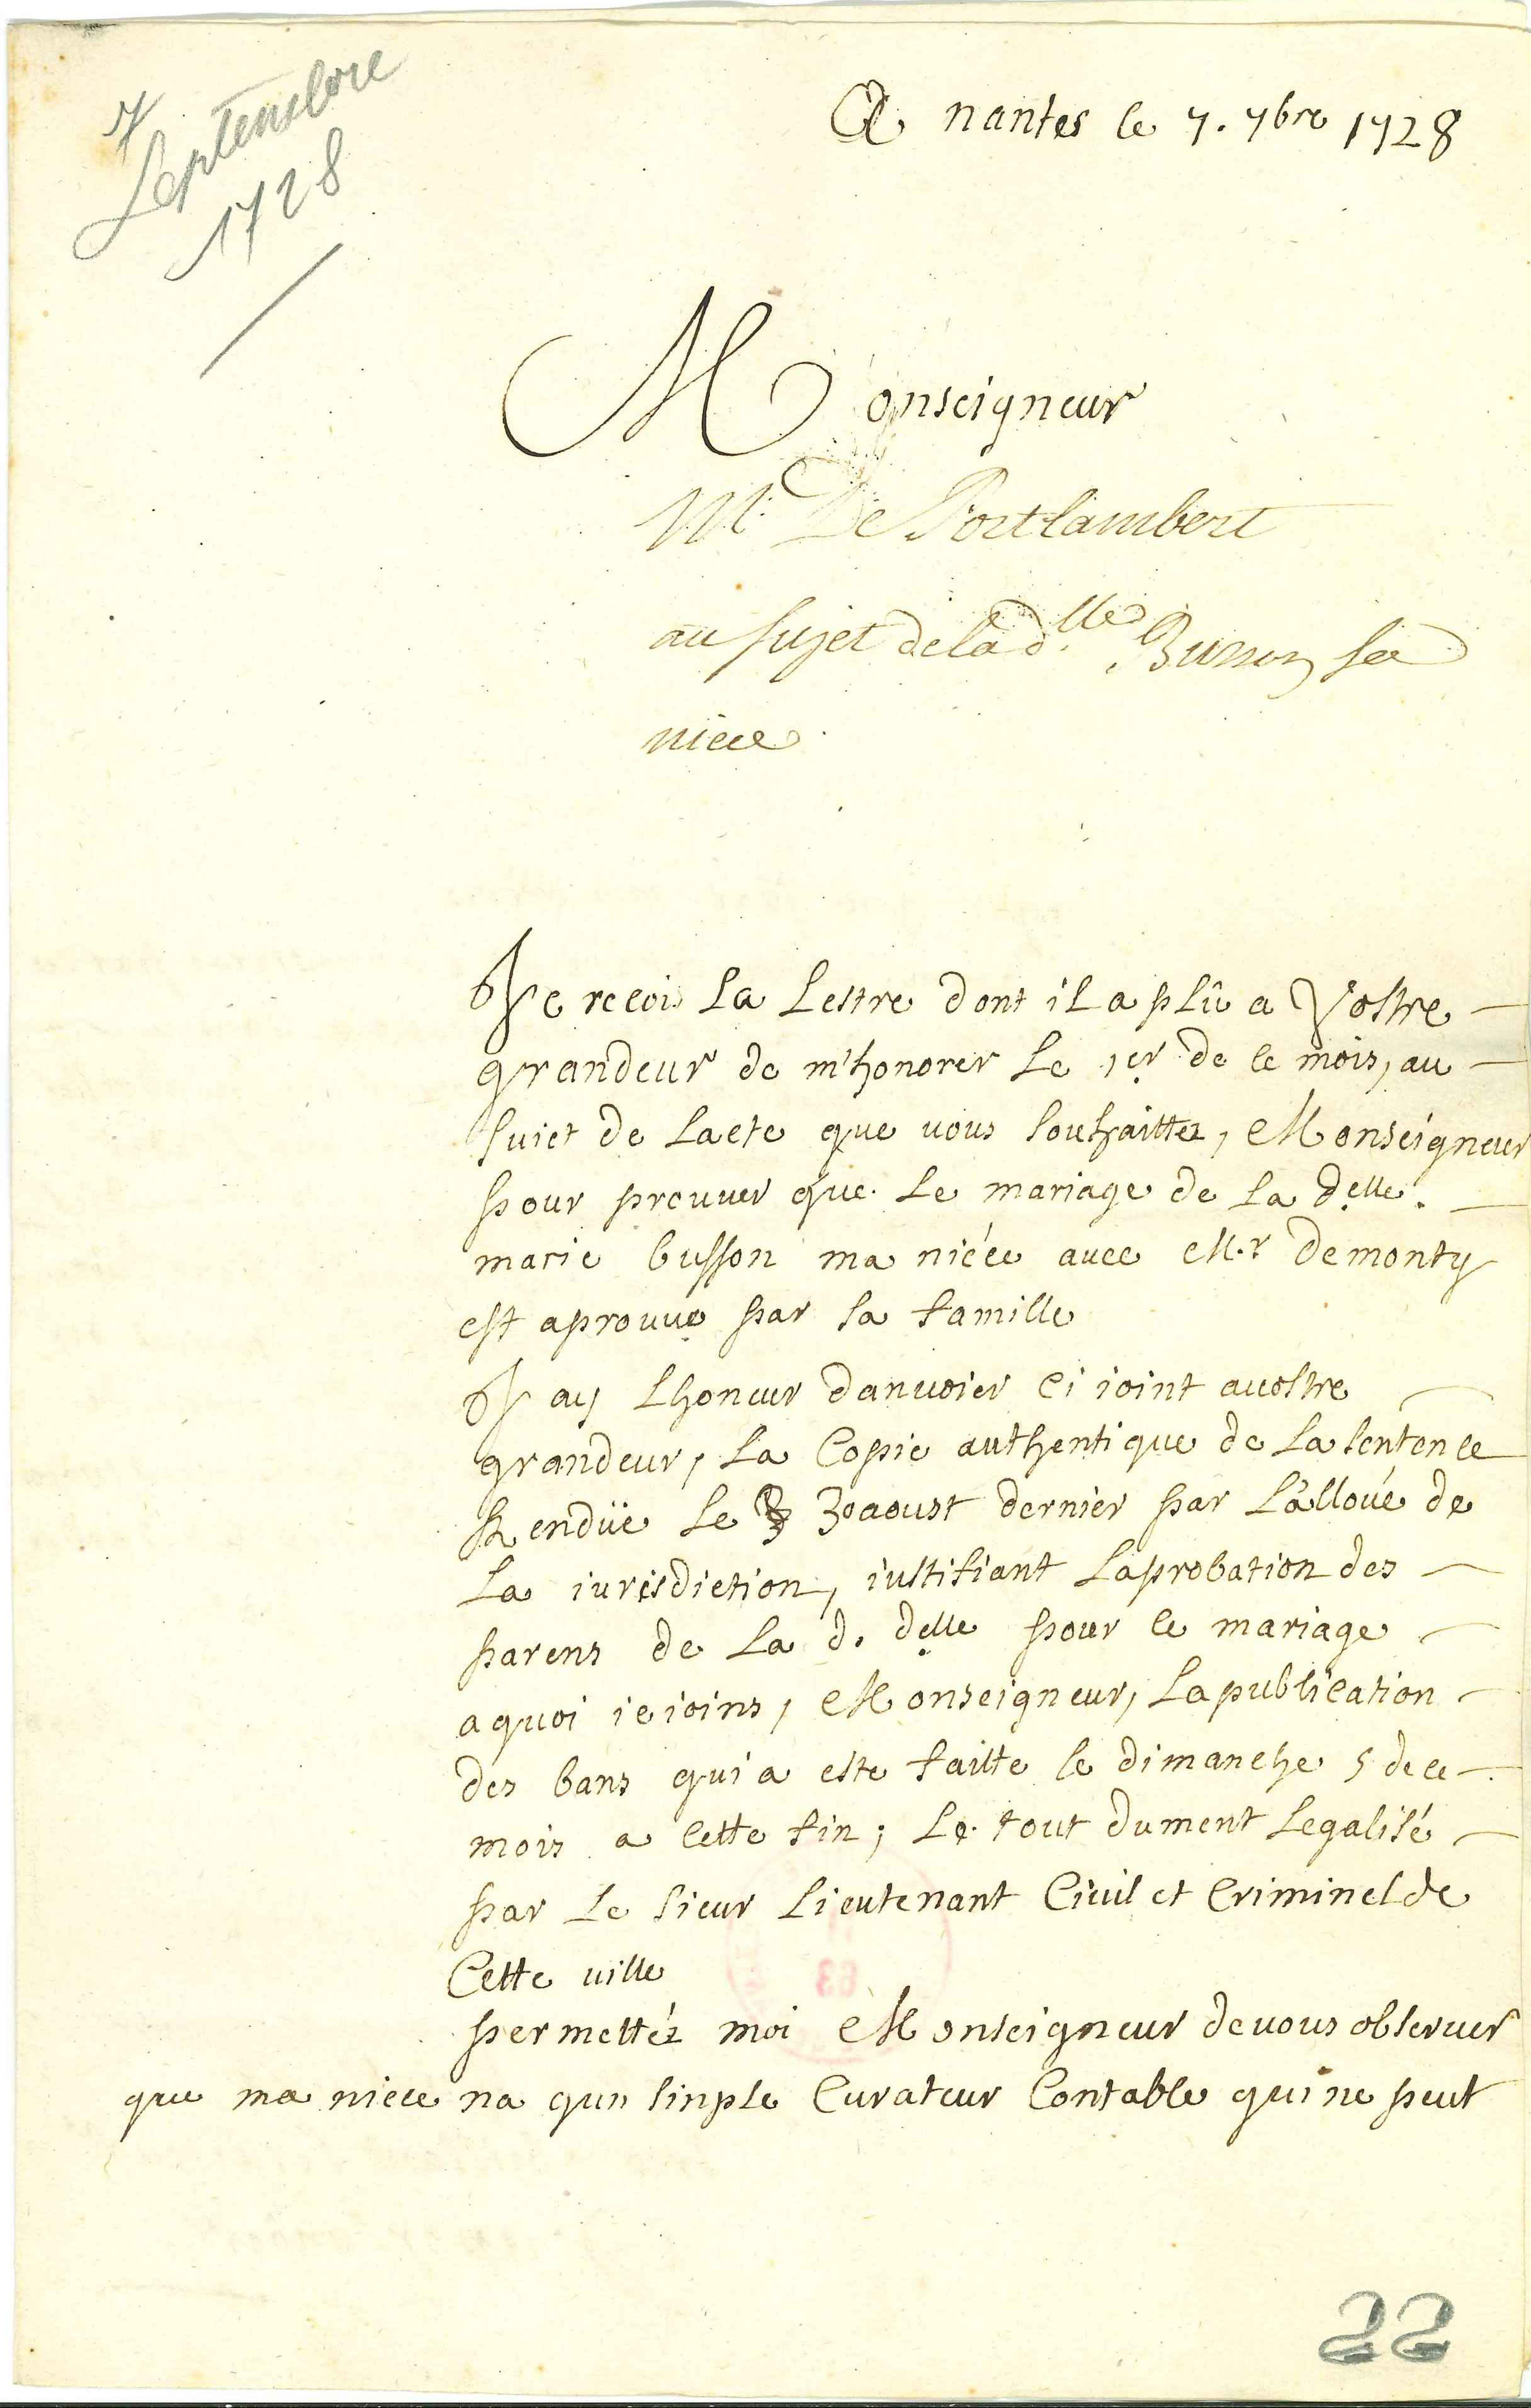 7
Septembre
1728
A nantes le 7. 7bre 1728
Monseigneur
Mr. De Portlambert
au sujet de la d.lle Busson sa
niece
Je recois la lettre dont il a plû a Vostre
grandeur de m'honorer le 1er de ce mois, au
suiet de lacte que vous souhaittez, Monseigneur
pour prouver que le mariage de la delle.
marie busson ma niéce avec M.r demonty
est aprouvé par sa famille
J'ay lhoneur danvoier ci ioint avostre
grandeur, la Copie authentique de la sentence
Rendüe le 30 aoust dernier par l'alloué de
la iurisdiction, iustifiant laprobation des
parens de la d. delle pour le mariage
aquoi ie ioins, Monseigneur, la publication
des bans qui a esté faitte le dimanche 5 de ce
mois a cette fin; le tout dument legalisé
par le sieur lieutenant Civil et Criminel de
Cette ville
permettéz moi Monseigneur de vous observer
que ma niece na qun sinple Curateur Contable qui ne peut
63
22